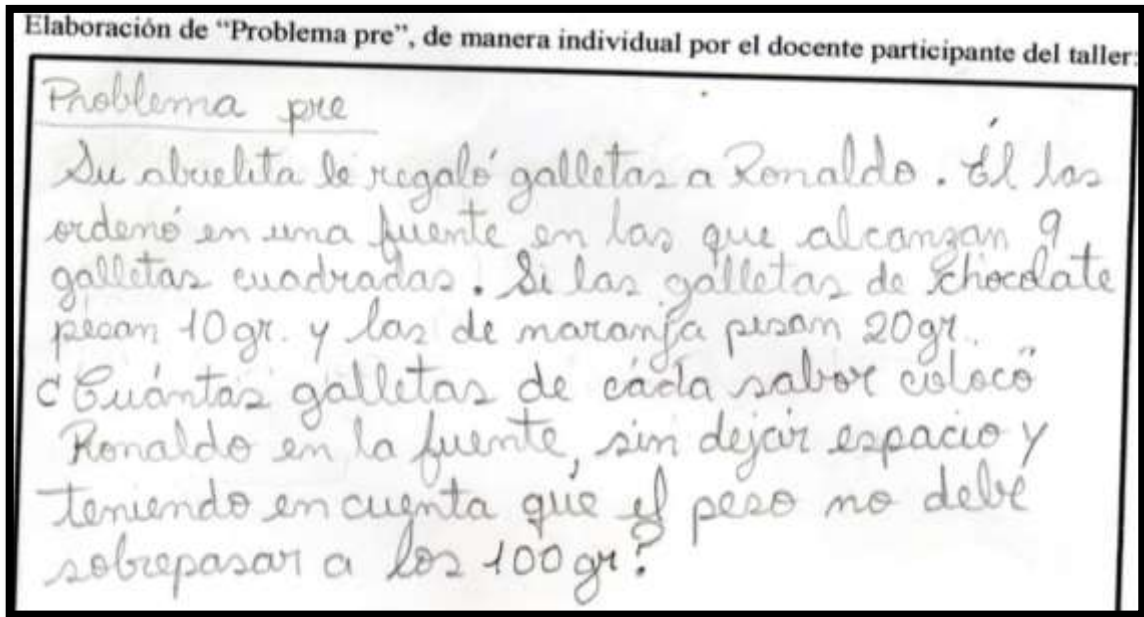 Elaboración de “Problema pre”, de manera individual por el docente participante del taller:
Problema pre
Su abuelita le regaló galletas a Ronaldo. Él las
ordenó en una fuente en las que alcanzan 9
galletas cuadradas. Si las galletas de chocolate
pesan 10gr. y las de naranja pesan 20gr.
¿Cuántas galletas de cada sabor colocó
Ronaldo en la fuente, sin dejar espacio y
teniendo en cuenta que el peso no debe
sobrepasar a los 100gr?